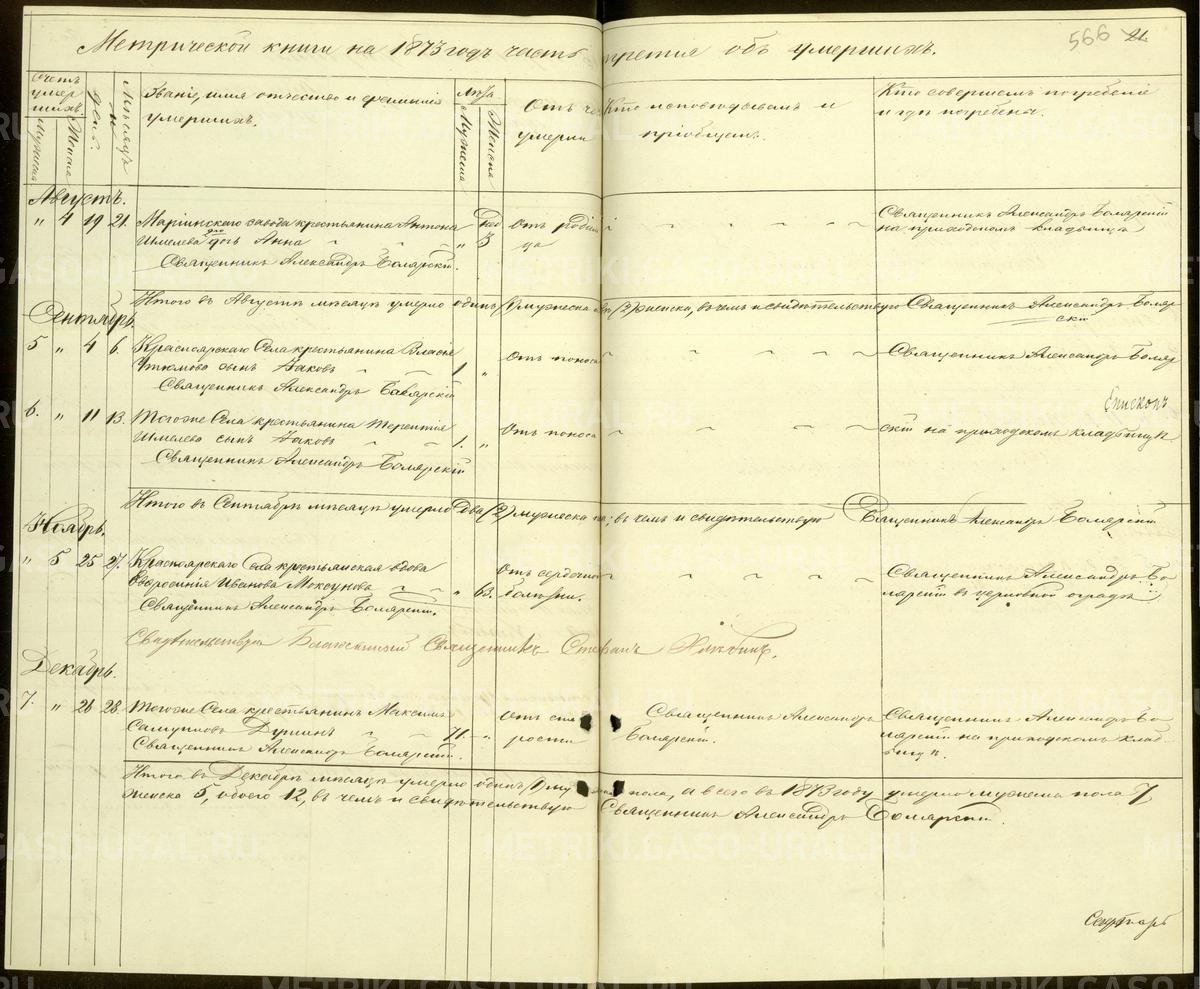 Метрической книги на 1873 годъ часть третія объ умершихъ.
566 21
Счетъ умершихъ.
Мужеска
Женска
день.
Мѣсяцъ
Званіе, имя отчество и фамилія умершихъ.
Лѣта
Мужеска
Женска
Отъ че
умерли
Кто исповѣдывалъ и
пріобщалъ.
Кто совершалъ погребеніе
и гдѣ погребены.
Августъ.
" 4 19 21. Маріинскаго завода крестьянина Антона
Шмелева дочь Анна " 3
Отъ родим
ца
Священникъ Александръ Боярскій
на приходскомъ кладбищѣ
Священникъ Александръ Боярскій.
Итого въ Августѣ мѣсяцѣ умерло одинъ (1) мужеска (2) женска, въ чемъ и свидѣтельствую Священникъ Александръ Бояр
скій
Сентябрь.
5 " 4 6. Красноярскаго Села крестьянина Власія
сынъ Іаковъ 1. "
Отъ поноса
Священникъ Александръ Бояр
Священникъ Александръ Боярскій
Епископъ
6. " 11 13. Тогоже Села крестьянина Терентія
Шмелева сынъ Іаковъ 1. "
Отъ поноса
скій на приходскомъ кладбищѣ
Священникъ Александръ Боярскій
Итого въ Сентябрѣ мѣсяцѣ умерло два (2) мужеска въ чемъ и свидѣтельствую Священникъ Александръ Боярскій.
Ноябрь.
" 5 25 27. Красноярскаго Села крестьянская вдова
Иванова " 63.
Отъ сердечной
болѣзни.
Священникъ Александръ Бо
ярскій въ церковной оградѣ.
Священникъ Александръ Боярскій.
Свидѣтельствую Благочинный Священникъ Стефанъ
Декабрь.
7. " 26 28. Тогоже Села крестьянинъ Максимъ
71. "
Отъ ста
рости
Священникъ Александръ
Боярскій.
Священникъ Александръ Бо
ярскій на приходскомъ клад
бищѣ.
Священникъ Александръ Боярскій.
Итого въ Декабрѣ мѣсяцѣ умерло одинъ (1) му пола, а всего въ 1873 году умерло мужеска пола 7
женска 5, обоего 12, въ чемъ и свидѣтельствую Священникъ Александръ Боярскій.
Секретарь
METRIKI.GASO-URAL.RU